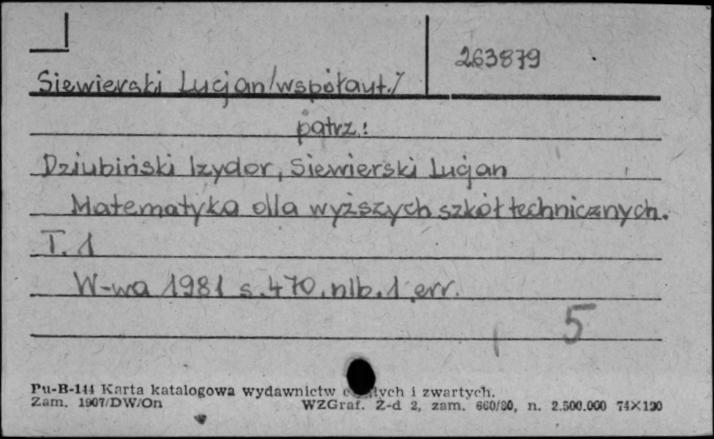 263879
Siewierski Lucjan/współaut./
patrz:
Dziubiński Izydor, Siewierski Lucjan
Matematyka dla wyższych szkół technicznych.
T. 1
W-wa 1981 s. 470, nlb. 1 err.
5
Pu-B-144 Karta katalogowa wydawnictw i zwartych.
Zam. 1907/DW/On WZGraf. Z-d 2, zam. 660/80, n. 2.500.000 74×120